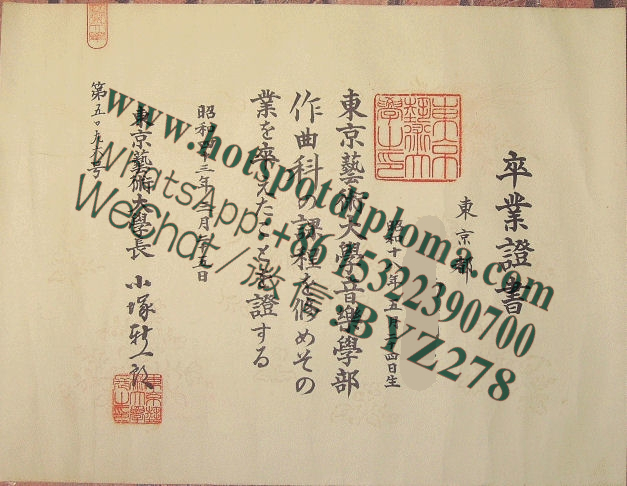 卒業證書
東京都
昭和十八年五月二十四日生
東京藝術大學音樂學部
作曲科の課程を修めその
業を卒えたことを證する
昭和四十三年三月二十五日
東京藝術大學長 小塚新一郎
第五〇号
東京藝術大學之印
www.hotspotdiploma.com
WhatsApp:+8615322390700
WeChat/微信:BYZ278